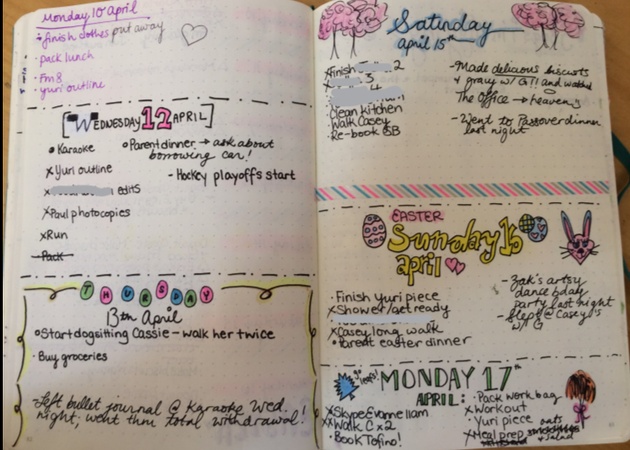 Monday 10 April
• finish clothes put away
• pack lunch
• Fm8
• yuri outline
WEDNESDAY 12 APRIL
• Karaoke
• Parent dinner → ask about
borrowing car!
x Yuri outline
- Hockey playoffs start
x edits
x Paul photocopies
x Run
- Pack
THURSDAY
13th April
• Start dogsitting Cassie - walk her twice
• Buy groceries
Left bullet journal @ Karaoke Wed.
night, went thru total withdrawal!
Saturday
april 15th
x Finish 2
3
4
• Clean kitchen
Walk Casey
• Re-book GB
- Made delicious biscuits
+ gravy w/ G!! and watched
The Office → heaven's
- Went to Passover dinner
last night
EASTER
Sunday 16
april
• Finish Yuri piece
x Shower/get ready
x Casey long walk
• Parent easter dinner
- Zak's artsy
dance bday
party last night
- Slept @ Casey's
w/ G
go leafs!
MONDAY 17th
APRIL:
x Skype Evonne 11am
x Walk C x2
• Book Tofino!
• Pack work bag
x Workout
• Yuri piece
x Meal prep
oats
& salad